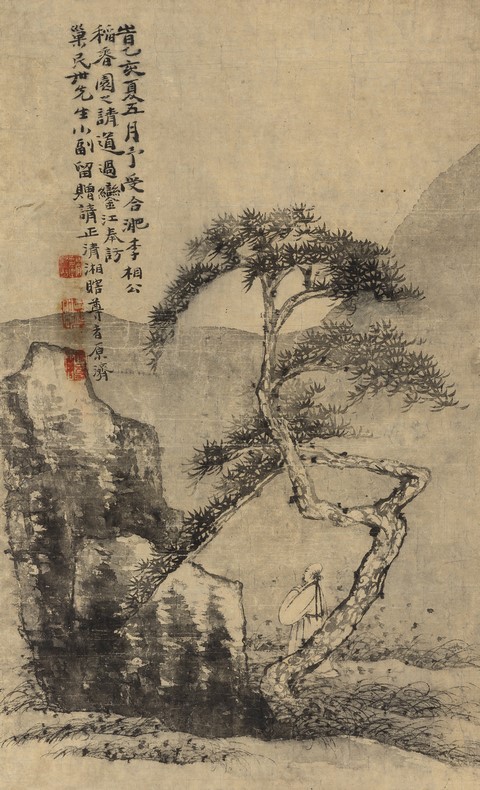 旹乙亥夏五月予受合淝李相公
稻香園之請道過鑾江奉訪
巢民世先生小副留贈請正清湘瞎尊者原濟